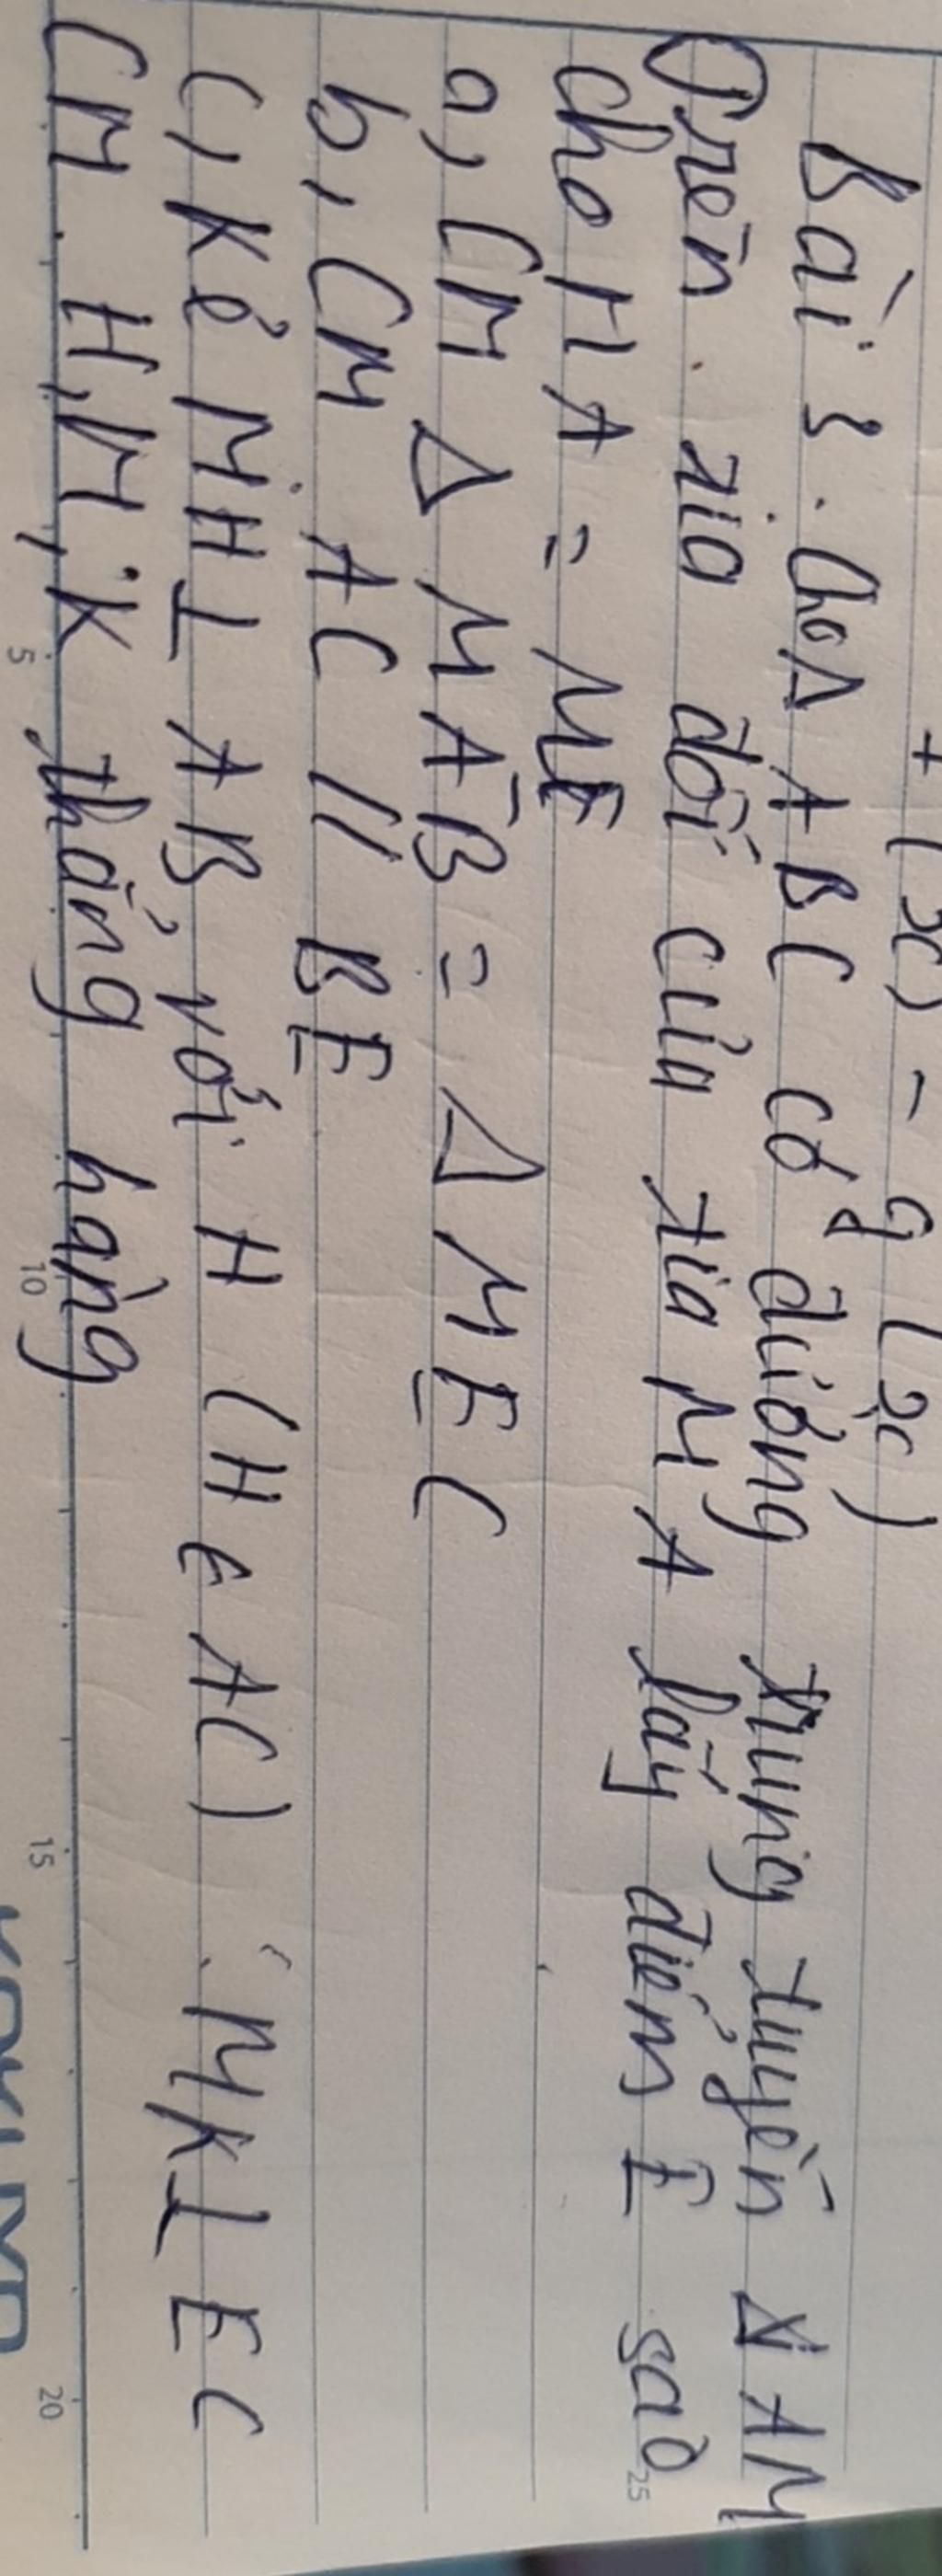 + (x) - 9 (x)
Bài 3. Cho Δ ABC có đường trung tuyến AM
Trên tia đối của tia MA lấy điểm E sao
cho MA = ME
a, CM Δ MAB = Δ MEC
b, CM AC // BE
c, Kẻ MH ⊥ AB, với H (H ∈ AC) MK ⊥ EC
CM H, M, K thẳng hàng
5 10 15 20 25